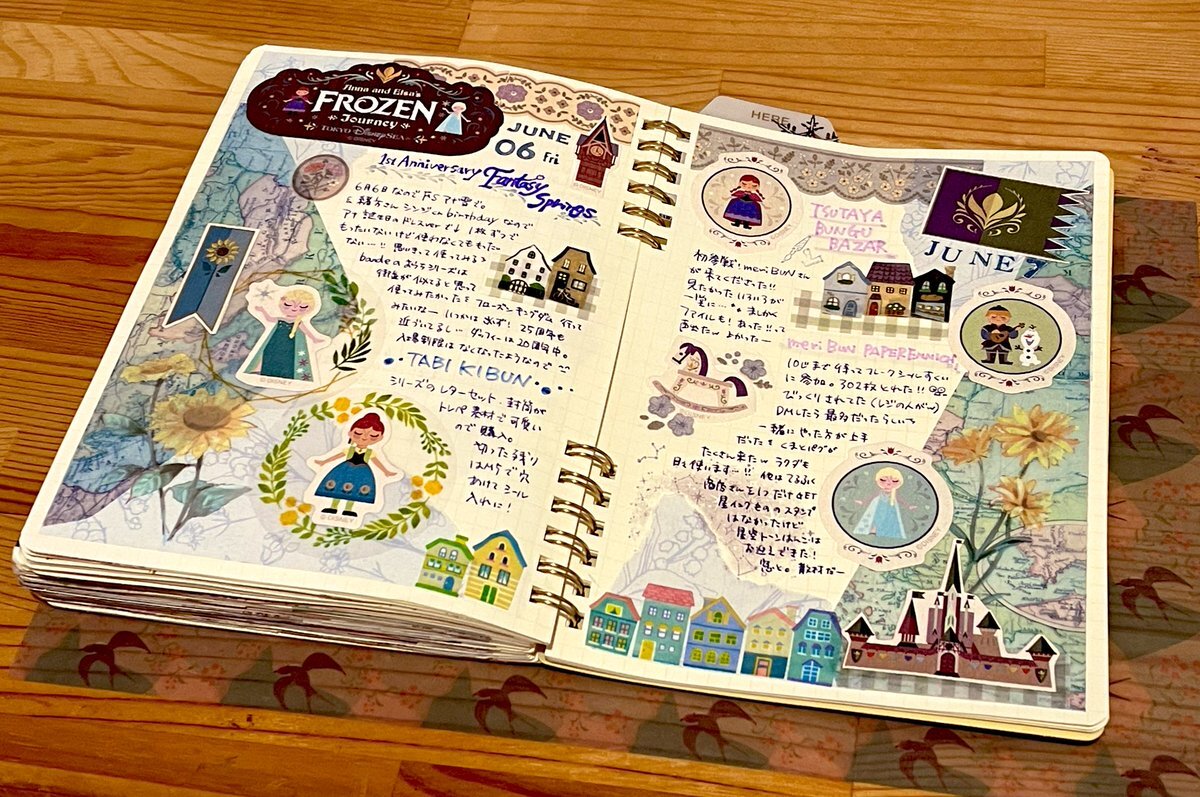 Anna and Elsa's
FROZEN
Journey
TOKYO DisneySEA
© DISNEY
JUNE
06 Fri
1st Anniversary Fantasy
Springs
6月6日なので FS アナ雪で
birthday なので
アナ 誕生日のドレスver. で↓ 1枚ずつで
もったいないけど使わなくてももった
ない…!! 思いきって使ってみる
bandeのおうちシリーズは
街並が似てると思って
使ってみたかった フローズンキングダム 行って
みたいなー いつかは必ず! 25周年も
近づいてるしー ダッフィーは20周年中。
入場制限はなくなったようなので
TABI KIBUN
シリーズのレターセット、封筒が
トレペ素材で可愛い
ので購入。
切った残り
はM5で穴
あけてシール
入れに!
© DISNEY
© DISNEY
© DISNEY
HERE
TSUTAYA
BUNGU
BAZAR
JUNE 7
初参戦! meriBUNさん
が来てくださった!!
見たかったいろいろが
一堂に…
ファイルも! あった!!って
声出たw よかったー
meriBUN PAPERENNICHI
10じまで待ってフレークシールすくい
に参加。302枚とれた!!
びっくりされてた(レジの人がw)
DMしたら 最多だったらしい
一緒にやった方が上手
だった くまとパグが
たくさん来たw ラクダも
目で使います…!!
商店さんを1つだけGET
星インクもののスタンプ
はなかったけど
星空トーンはんこは
お迎えできた!